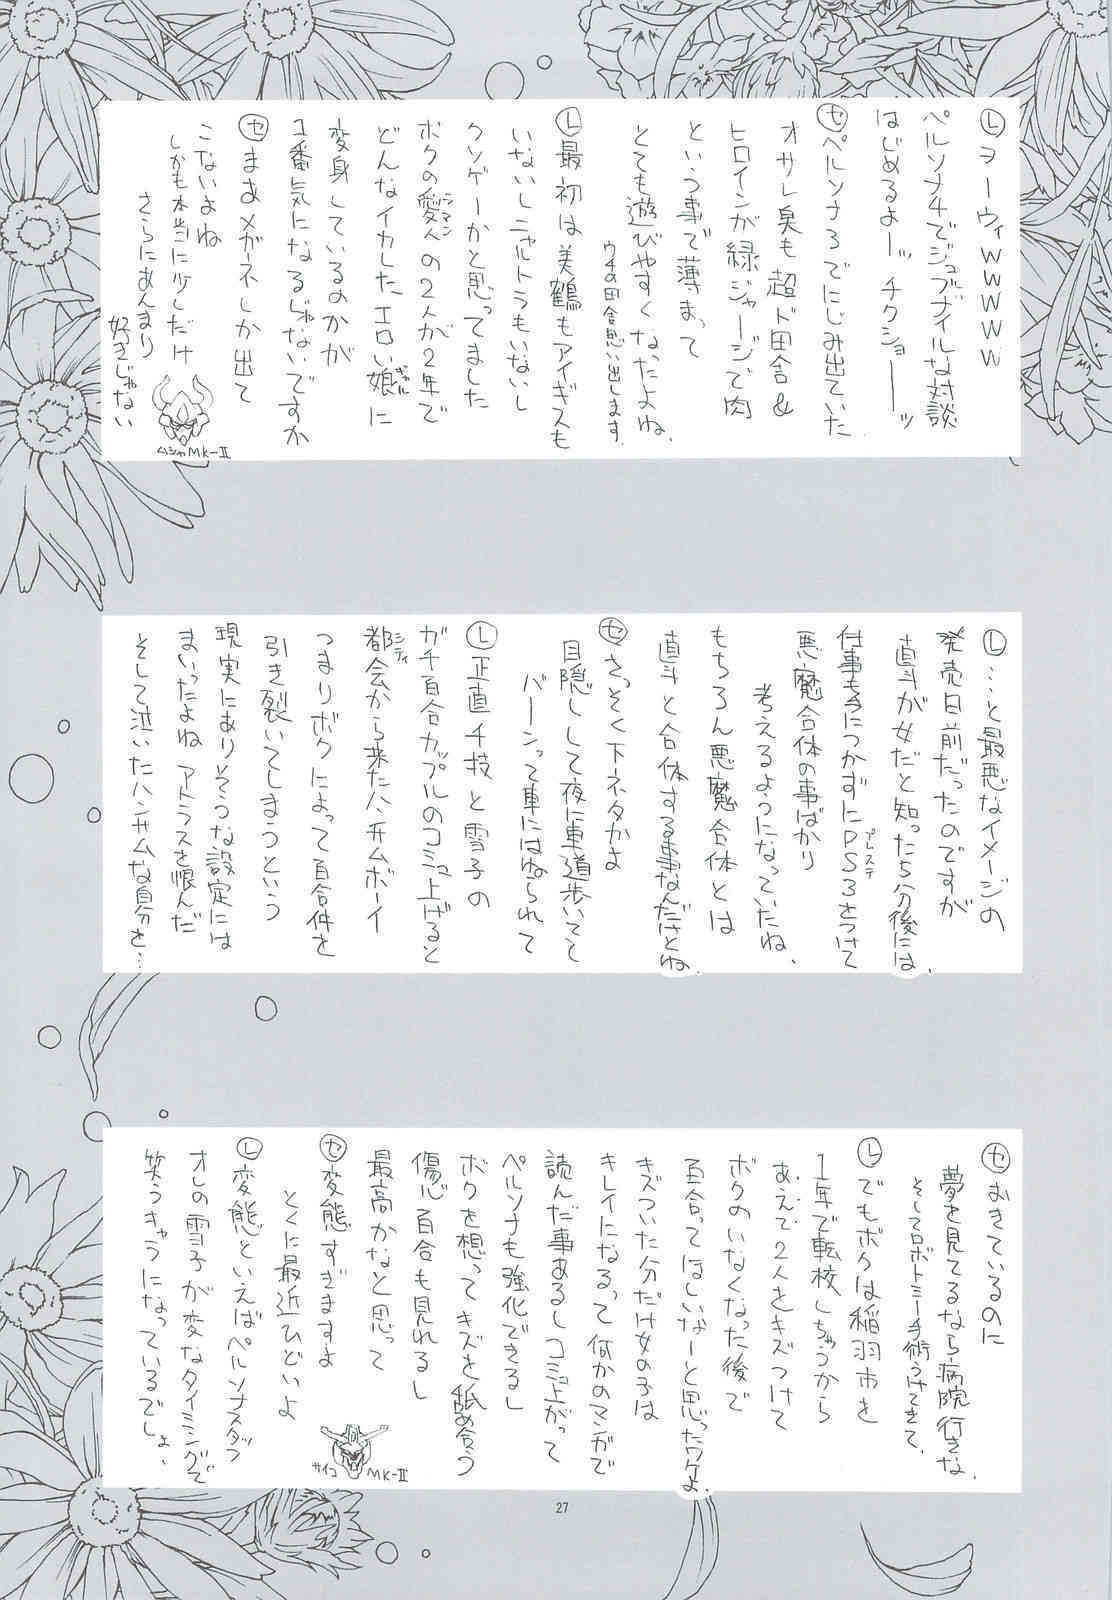 Ⓛヲーウィwwwww
ペルソナ4でジュブナイルな対談
はじめるよーッ チクショーーーッ
㋝ペルソナ3でにじみ出ていた
オサレ臭も超ド田舎&
ヒロインが緑ジャージで肉
という事で薄まって
とても遊びやすくなったよね、
ウチの田舎思い出します
Ⓛ最初は美鶴もアイギスも
いないしニャルトラもいないし
クソゲーかと思ってました
ボクの愛人の2人が2年で
ラマン
どんなイカした、エロい娘に
ギャル
変身しているのかが
1番気になるじゃないですか
㋝まあメガーネしか出て
こないよね
しかも本当に少しだけ
さらにあんまり
好きじゃない
ムシャMK-II
Ⓛ……と最悪なイメージの
発売日前だったのですが
直斗が女だと知った5分後には、
仕事も手につかずにPS3をつけて
プレステ
悪魔合体の事ばかり
考えるようになっていたね、
もちろん悪魔合体とは
直斗と合体する事なんだけどね、
㋝さっそく下ネタかよ
目隠しして夜に車道歩いてて
バーンって車にはねられて
Ⓛ正直千枝と雪子の
ガチ百合カップルのコミュ上げると
都会から来たハンサムボーイ
シティ
つまりボクによって百合仲を
引き裂いてしまうという
現実にありそうな設定には
まいったよね アトラスを恨んだ
そして泣いたハンサムな自分を…
㋝おきているのに
夢を見てるなら病院行きな、
そしてロボトミー手術うけてきて、
Ⓛでもボクは稲羽市を
1年で転校しちゃうから
あえて2人をキズつけて
ボクのいなくなった後で
百合ってほしいなーと思ったワケよ、
キズついた分だけ女の子は
キレイになるって何かのマンガで
読んだ事あるしコミュ上がって
ペルソナも強化できるし
ボクを想ってキズを舐め合う
傷心百合も見れるし
最高かなと思って
㋝変態すぎますよ
とくに最近ひどいよ
サイコMK-II
Ⓛ変態といえばペルソナスタッフ
オレの雪子が変なタイミングで
笑うキャラになっているでしょ、
27